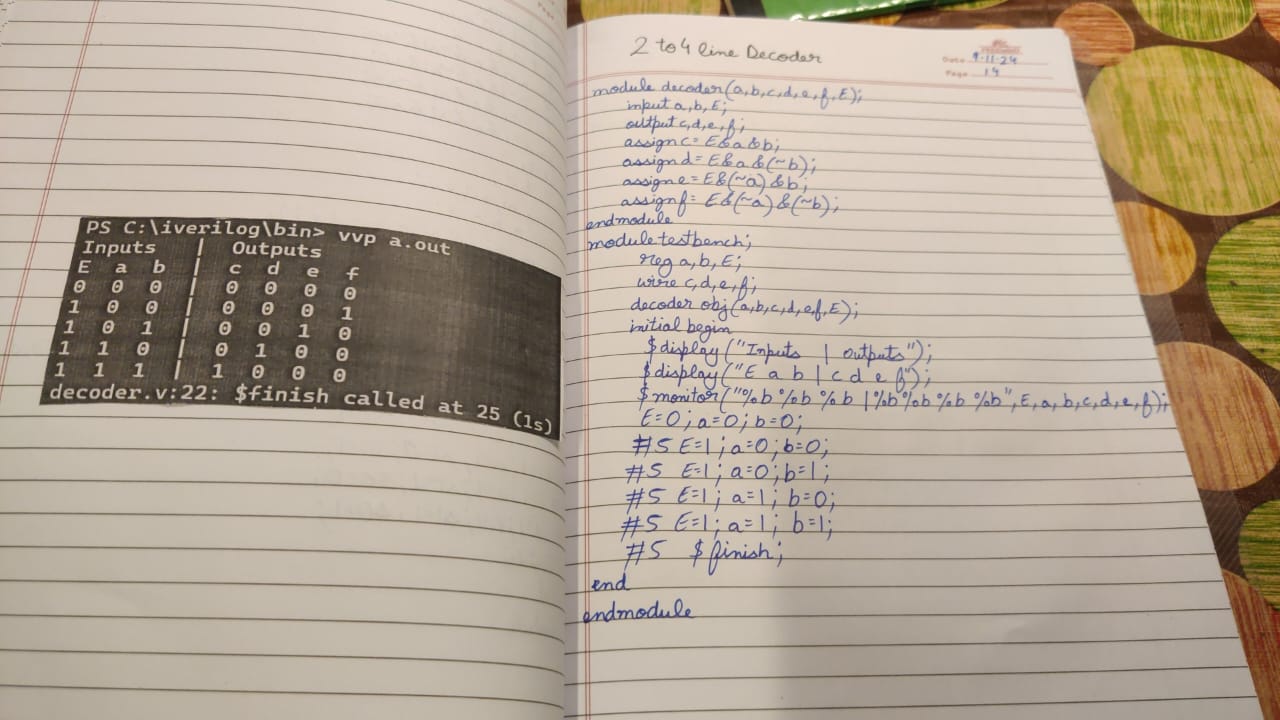 PS C:\iverilog\bin> vvp a.out
Inputs | Outputs
E a b | c d e f
0 0 0 | 0 0 0 0
1 0 0 | 0 0 0 1
1 0 1 | 0 0 1 0
1 1 0 | 0 1 0 0
1 1 1 | 1 0 0 0
decoder.v:22: $finish called at 25 (1s)
2 to 4 line Decoder
Date 9-11-24
Page 14
module decoder(a,b,c,d,e,f,E);
input a,b,E;
output c,d,e,f;
assign c= E&a&b;
assign d= E&a&(~b);
assign e= E&(~a)&b;
assign f= E&(~a)&(~b);
endmodule
module testbench;
reg a,b,E;
wire c,d,e,f;
decoder obj(a,b,c,d,e,f,E);
initial begin
$display("Inputs | outputs");
$display("E a b | c d e f");
$monitor("%b %b %b | %b %b %b %b",E,a,b,c,d,e,f);
E=0; a=0; b=0;
#5 E=1; a=0; b=0;
#5 E=1; a=0; b=1;
#5 E=1; a=1; b=0;
#5 E=1; a=1; b=1;
#5 $finish;
end
endmodule